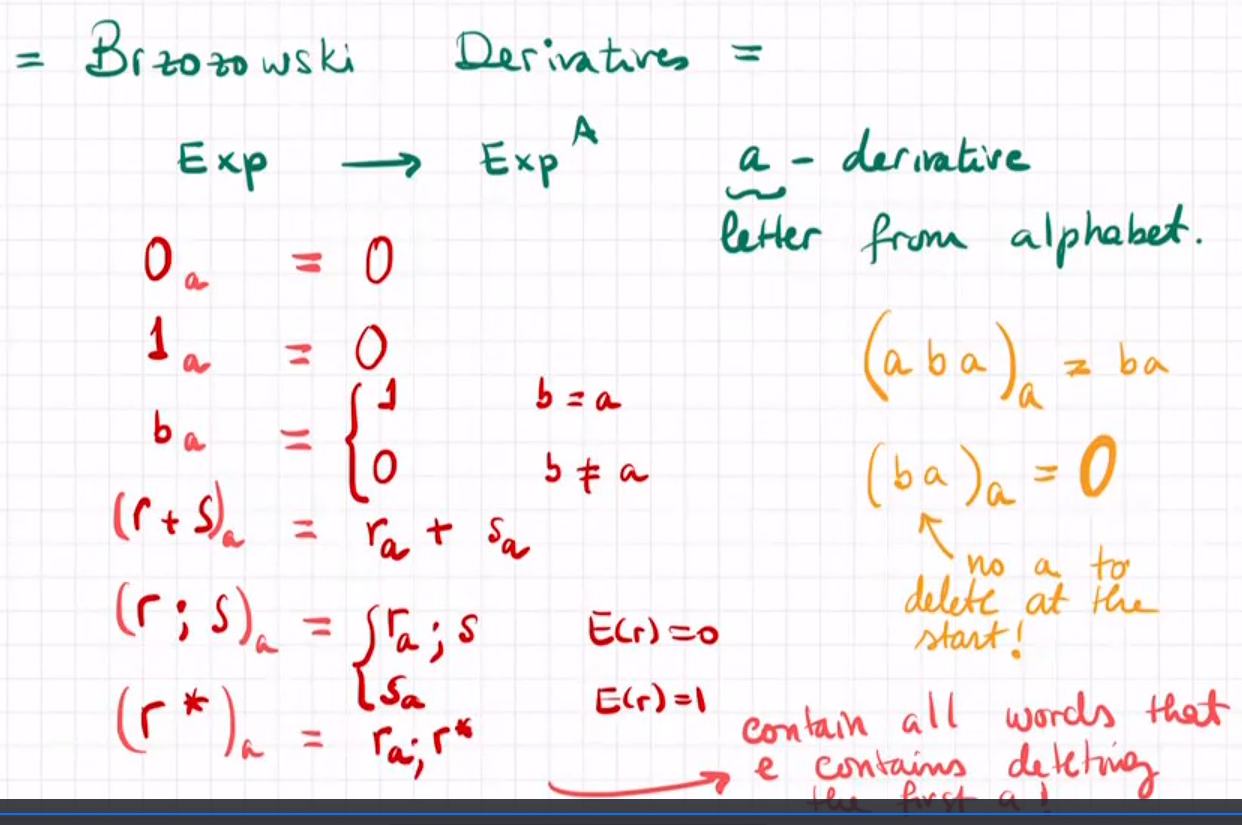 = Brzozowski Derivatives =
Exp → Exp^A
a - derivative
letter from alphabet.
0_a = 0
1_a = 0
b_a = { 1 b = a
0 b ≠ a
(r + s)_a = r_a + s_a
(r ; s)_a = { r_a ; s E(r)=0
s_a E(r)=1
(r*)_a = r_a; r*
(aba)_a = ba
(ba)_a = 0
no a to
delete at the
start!
contain all words that
e contains deleting
the first a!